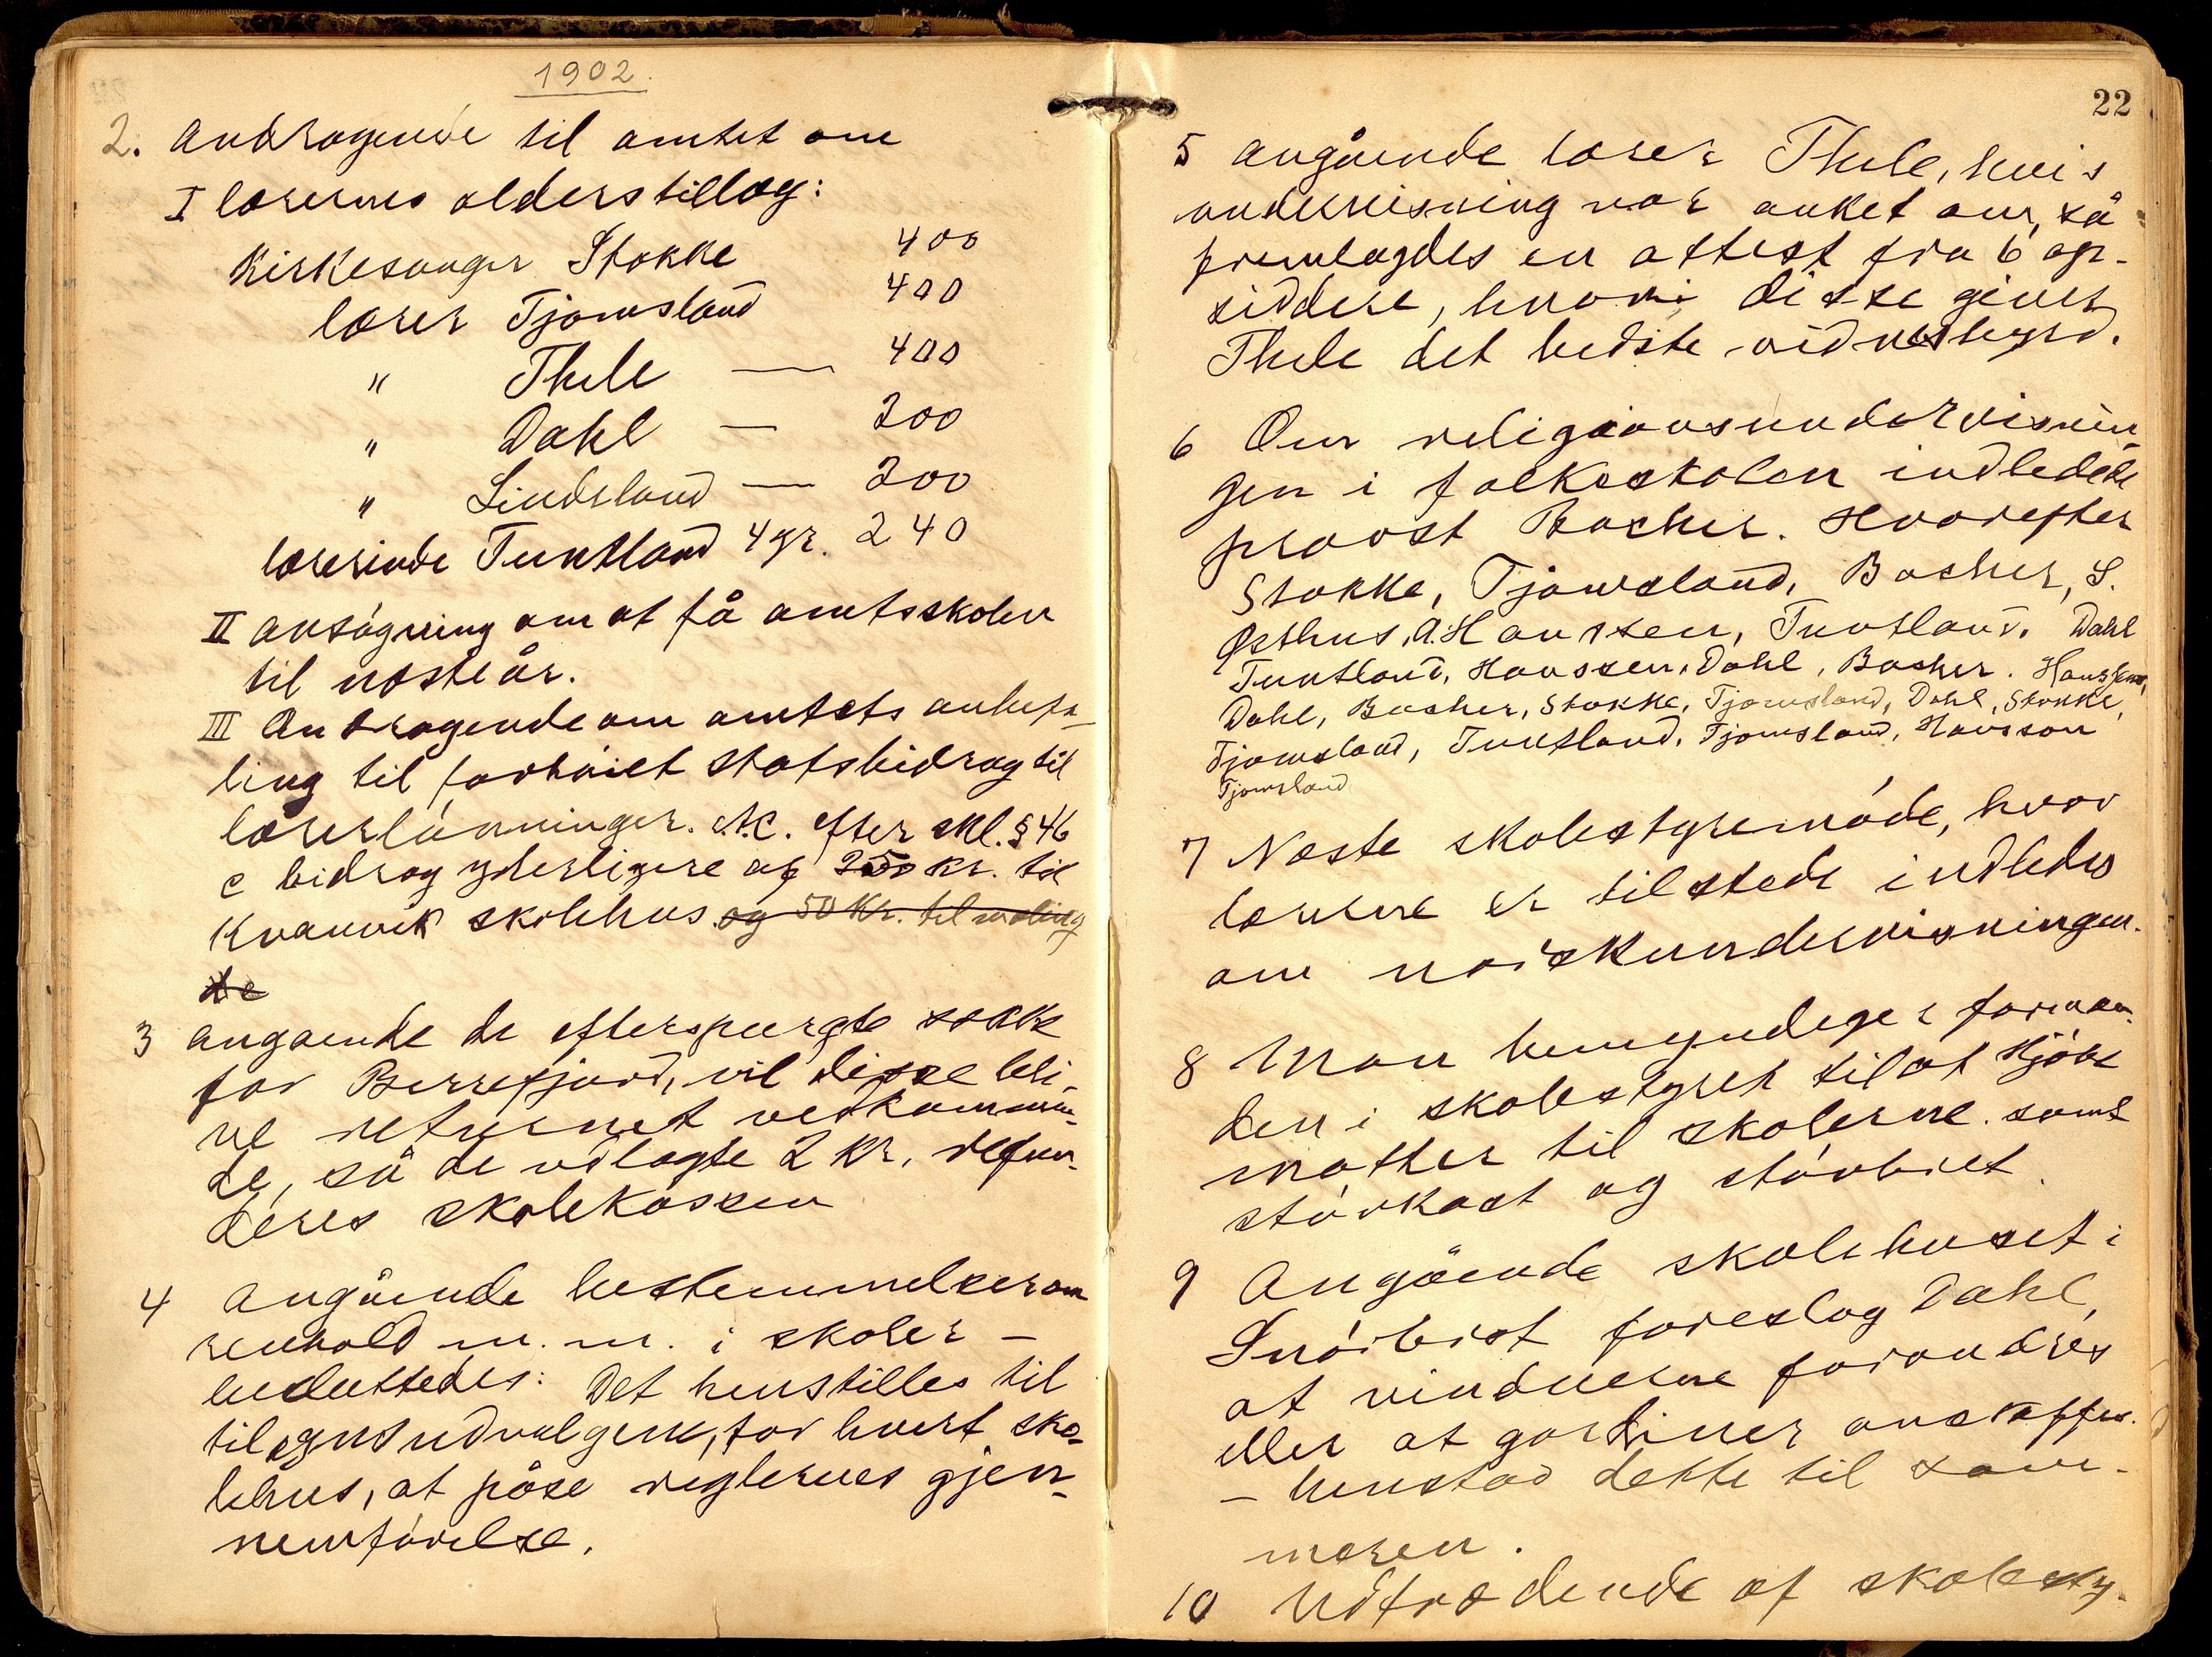 1902.
2. Andragende til amtet om
I lærernes alderstillæg:
Kirkesanger Stokke 400
lærer Tjomsland 400
" Thule — 400
" Dahl — 200
" Lindsland — 200
lærerinde Tuntland 4 gr. 240
II ansøgning om at få amtsskolen
til næste år.
III Andragende om amtets anbefa-
ling til forhøiet statsbidrag til
lærerlønninger. efter skl. § 46
c bidrag yderligere af kr. til
Kvanvik skolehus og 50 kr. til maling
de
3 angaaende de efterspurgte
for Berrefjord, vil disse bli-
ve returnet vedkommen-
de, så de udlagte 2 kr. refun-
deres skolekassen
4 Angående bestemmelser om
renhold m. m. i skoler –
besluttedes: Det henstilles til
tilsynsudvalgene, for hvert sko-
lehus, at påse reglernes gjen-
nemførelse.
22
5 angående lærer Thule, hvis
undervisning var anket over, så
fremlagdes en attest fra 6 op-
siddere, hvori disse giver
Thule det bedste vidnesbyrd.
6 Om religionsundervisnin
gen i folkeskolen indledede
provst Bacher. Hvorefter
Stokke, Tjomsland, Bacher, S.
Østhus, A. Hanssen, Tuntland, Dahl
Tuntland, Hanssen, Dahl, Bacher. Hanssen,
Dahl, Bacher, Stokke, Tjomsland, Dahl, Stokke,
Tjomsland, Tuntland, Tjomsland, Hansson
Tjomsland
7 Næste skolestyremøde, hvor
lærerne er tilstede indledes
om norskundervisningen.
8 Man bemyndiger forman-
den i skolestyret til at kjøbe
matter til skolerne. samt
støvkost og støvbret.
9 Angående skolehuset i
Snørbist foreslog Dahl,
at vinduerne forandres
eller at gardiner anskaffes.
– henstod dette til som-
meren.
10 Udtrædende af skolesty-